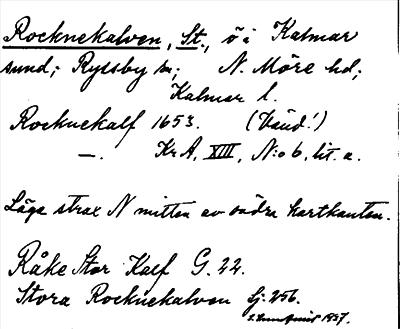 Rocknekalven, St., ö i Kalmar
sund; Ryssby sn; N. Möre hd;
Kalmar l.
Rocknekalf 1653. (Vänd!)
—. Kr A, XIII, N:o 6, lit. a.
Låga strax N mitten av södra kartkanten.
Råke Stor Kalf G. 22.
Stora Rocknekalven Sj: 256.
1937.